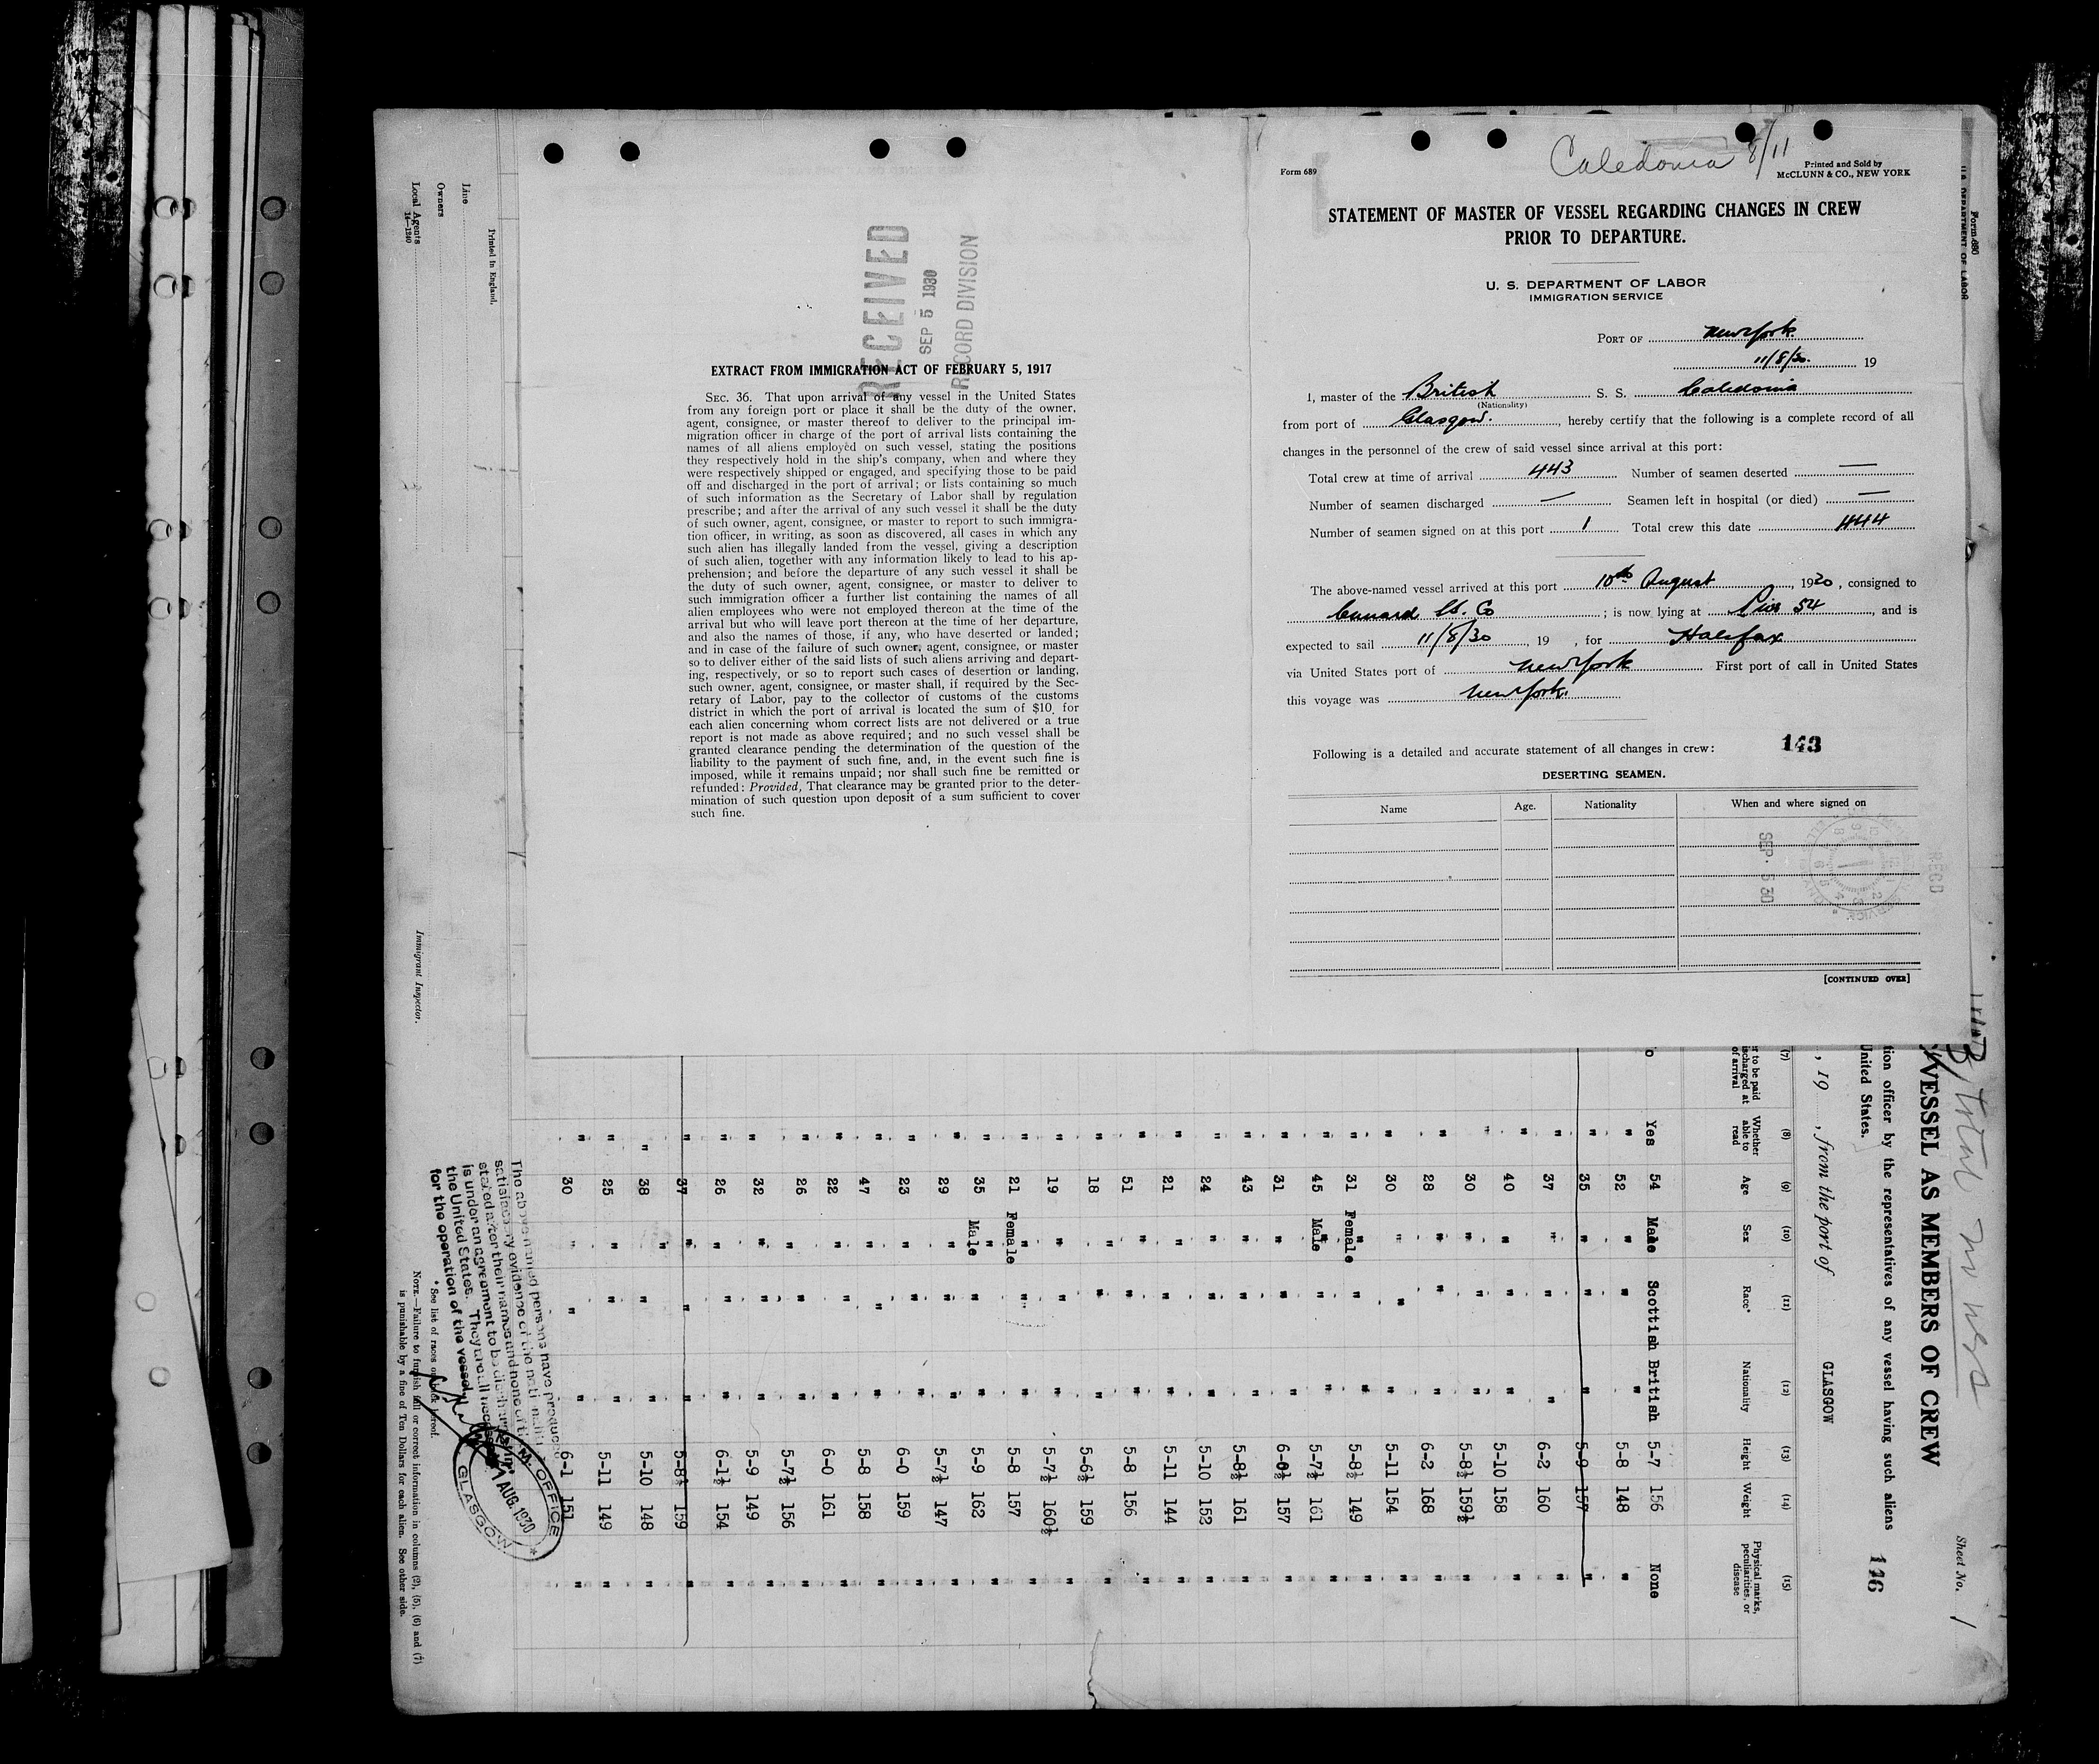 Caledonia 8/11
Form 689
Printed and Sold by
McCLUNN & CO., NEW YORK
STATEMENT OF MASTER OF VESSEL REGARDING CHANGES IN CREW
PRIOR TO DEPARTURE.
U. S. DEPARTMENT OF LABOR
IMMIGRATION SERVICE
PORT OF New York
11/8/30. 19
I, master of the British S. S. Caledonia
(Nationality)
from port of Glasgow. , hereby certify that the following is a complete record of all
changes in the personnel of the crew of said vessel since arrival at this port:
Total crew at time of arrival 443 Number of seamen deserted —
Number of seamen discharged — Seamen left in hospital (or died) —
Number of seamen signed on at this port 1 Total crew this date 444
The above-named vessel arrived at this port 10th August , 1930 , consigned to
Cunard SS. Co ; is now lying at Pier 54 , and is
expected to sail 11/8/30 , 19 , for Halifax
via United States port of New York First port of call in United States
this voyage was New York.
Following is a detailed and accurate statement of all changes in crew: 143
DESERTING SEAMEN.
Name Age. Nationality When and where signed on
SEP. 5 30
RECD
[CONTINUED OVER]
RECEIVED
SEP 5 1930
RECORD DIVISION
EXTRACT FROM IMMIGRATION ACT OF FEBRUARY 5, 1917
SEC. 36. That upon arrival of any vessel in the United States
from any foreign port or place it shall be the duty of the owner,
agent, consignee, or master thereof to deliver to the principal im-
migration officer in charge of the port of arrival lists containing the
names of all aliens employed on such vessel, stating the positions
they respectively hold in the ship's company, when and where they
were respectively shipped or engaged, and specifying those to be paid
off and discharged in the port of arrival; or lists containing so much
of such information as the Secretary of Labor shall by regulation
prescribe; and after the arrival of any such vessel it shall be the duty
of such owner, agent, consignee, or master to report to such immigra-
tion officer, in writing, as soon as discovered, all cases in which any
such alien has illegally landed from the vessel, giving a description
of such alien, together with any information likely to lead to his ap-
prehension; and before the departure of any such vessel it shall be
the duty of such owner, agent, consignee, or master to deliver to
such immigration officer a further list containing the names of all
alien employees who were not employed thereon at the time of the
arrival but who will leave port thereon at the time of her departure,
and also the names of those, if any, who have deserted or landed;
and in case of the failure of such owner, agent, consignee, or master
so to deliver either of the said lists of such aliens arriving and depart-
ing, respectively, or so to report such cases of desertion or landing,
such owner, agent, consignee, or master shall, if required by the Sec-
retary of Labor, pay to the collector of customs of the customs
district in which the port of arrival is located the sum of $10 for
each alien concerning whom correct lists are not delivered or a true
report is not made as above required; and no such vessel shall be
granted clearance pending the determination of the question of the
liability to the payment of such fine, and, in the event such fine is
imposed, while it remains unpaid; nor shall such fine be remitted or
refunded: Provided, That clearance may be granted prior to the deter-
mination of such question upon deposit of a sum sufficient to cover
such fine.
Form 680
U.S. DEPARTMENT OF LABOR
Sheet No. 1
VESSEL AS MEMBERS OF CREW
tion officer by the representatives of any vessel having such aliens
United States.
146
, 19 , from the port of GLASGOW
(7) (8) (9) (10) (11) (12) (13) (14) (15)
r to be paid
ischarged at
of arrival
Whether
able to
read
Age Sex Race* Nationality Height Weight
Physical marks,
peculiarities, or
disease
o Yes 54 Male Scottish British 5-7 156 None
" 52 " " " 5-8 148 "
" 35 " " " 5-9 157 "
" 37 " " " 6-2 160 "
" 40 " " " 5-10 158 "
" 30 " " " 5-8½ 159½ "
" 28 " " " 6-2 168 "
" 30 " " " 5-11 154 "
" 31 Female " " 5-8½ 149 "
" 45 Male " " 5-7½ 161 "
" 31 " " " 6-0½ 157 "
" 43 " " " 5-8½ 161 "
" 24 " " " 5-10 152 "
" 21 " " " 5-11 144 "
" 51 " " " 5-8 156 "
" 18 " " " 5-6½ 159 "
" 19 " " " 5-7½ 160½ "
" 21 Female " " 5-8 157 "
" 35 Male " " 5-9 162 "
" 29 " " " 5-7½ 147 "
" 23 " " " 6-0 159 "
" 47 " " " 5-8 158 "
" 22 " " " 6-0 161 "
" 26 " " " 5-7½ 156 "
" 32 " " " 5-9 149 "
" 26 " " " 6-1½ 154 "
" 37 " " " 5-8½ 159 "
" 38 " " " 5-10 148 "
" 25 " " " 5-11 149 "
" 30 " " " 6-1 151 "
The above named persons have produced
satisfactory evidence of the nationality
stated after their names and none of them
is under an agreement to be discharged in
the United States. They are all necessary
for the operation of the vessel.
M. OFFICE
1 AUG. 1930
GLASGOW
* See list of races on back hereof.
NOTE.—Failure to furnish full or correct information in columns (2), (5), (6) and (7)
is punishable by a fine of Ten Dollars for each alien. See other side.
Printed in England.
Line
Owners
Local Agents
14—1240
Immigrant Inspector.